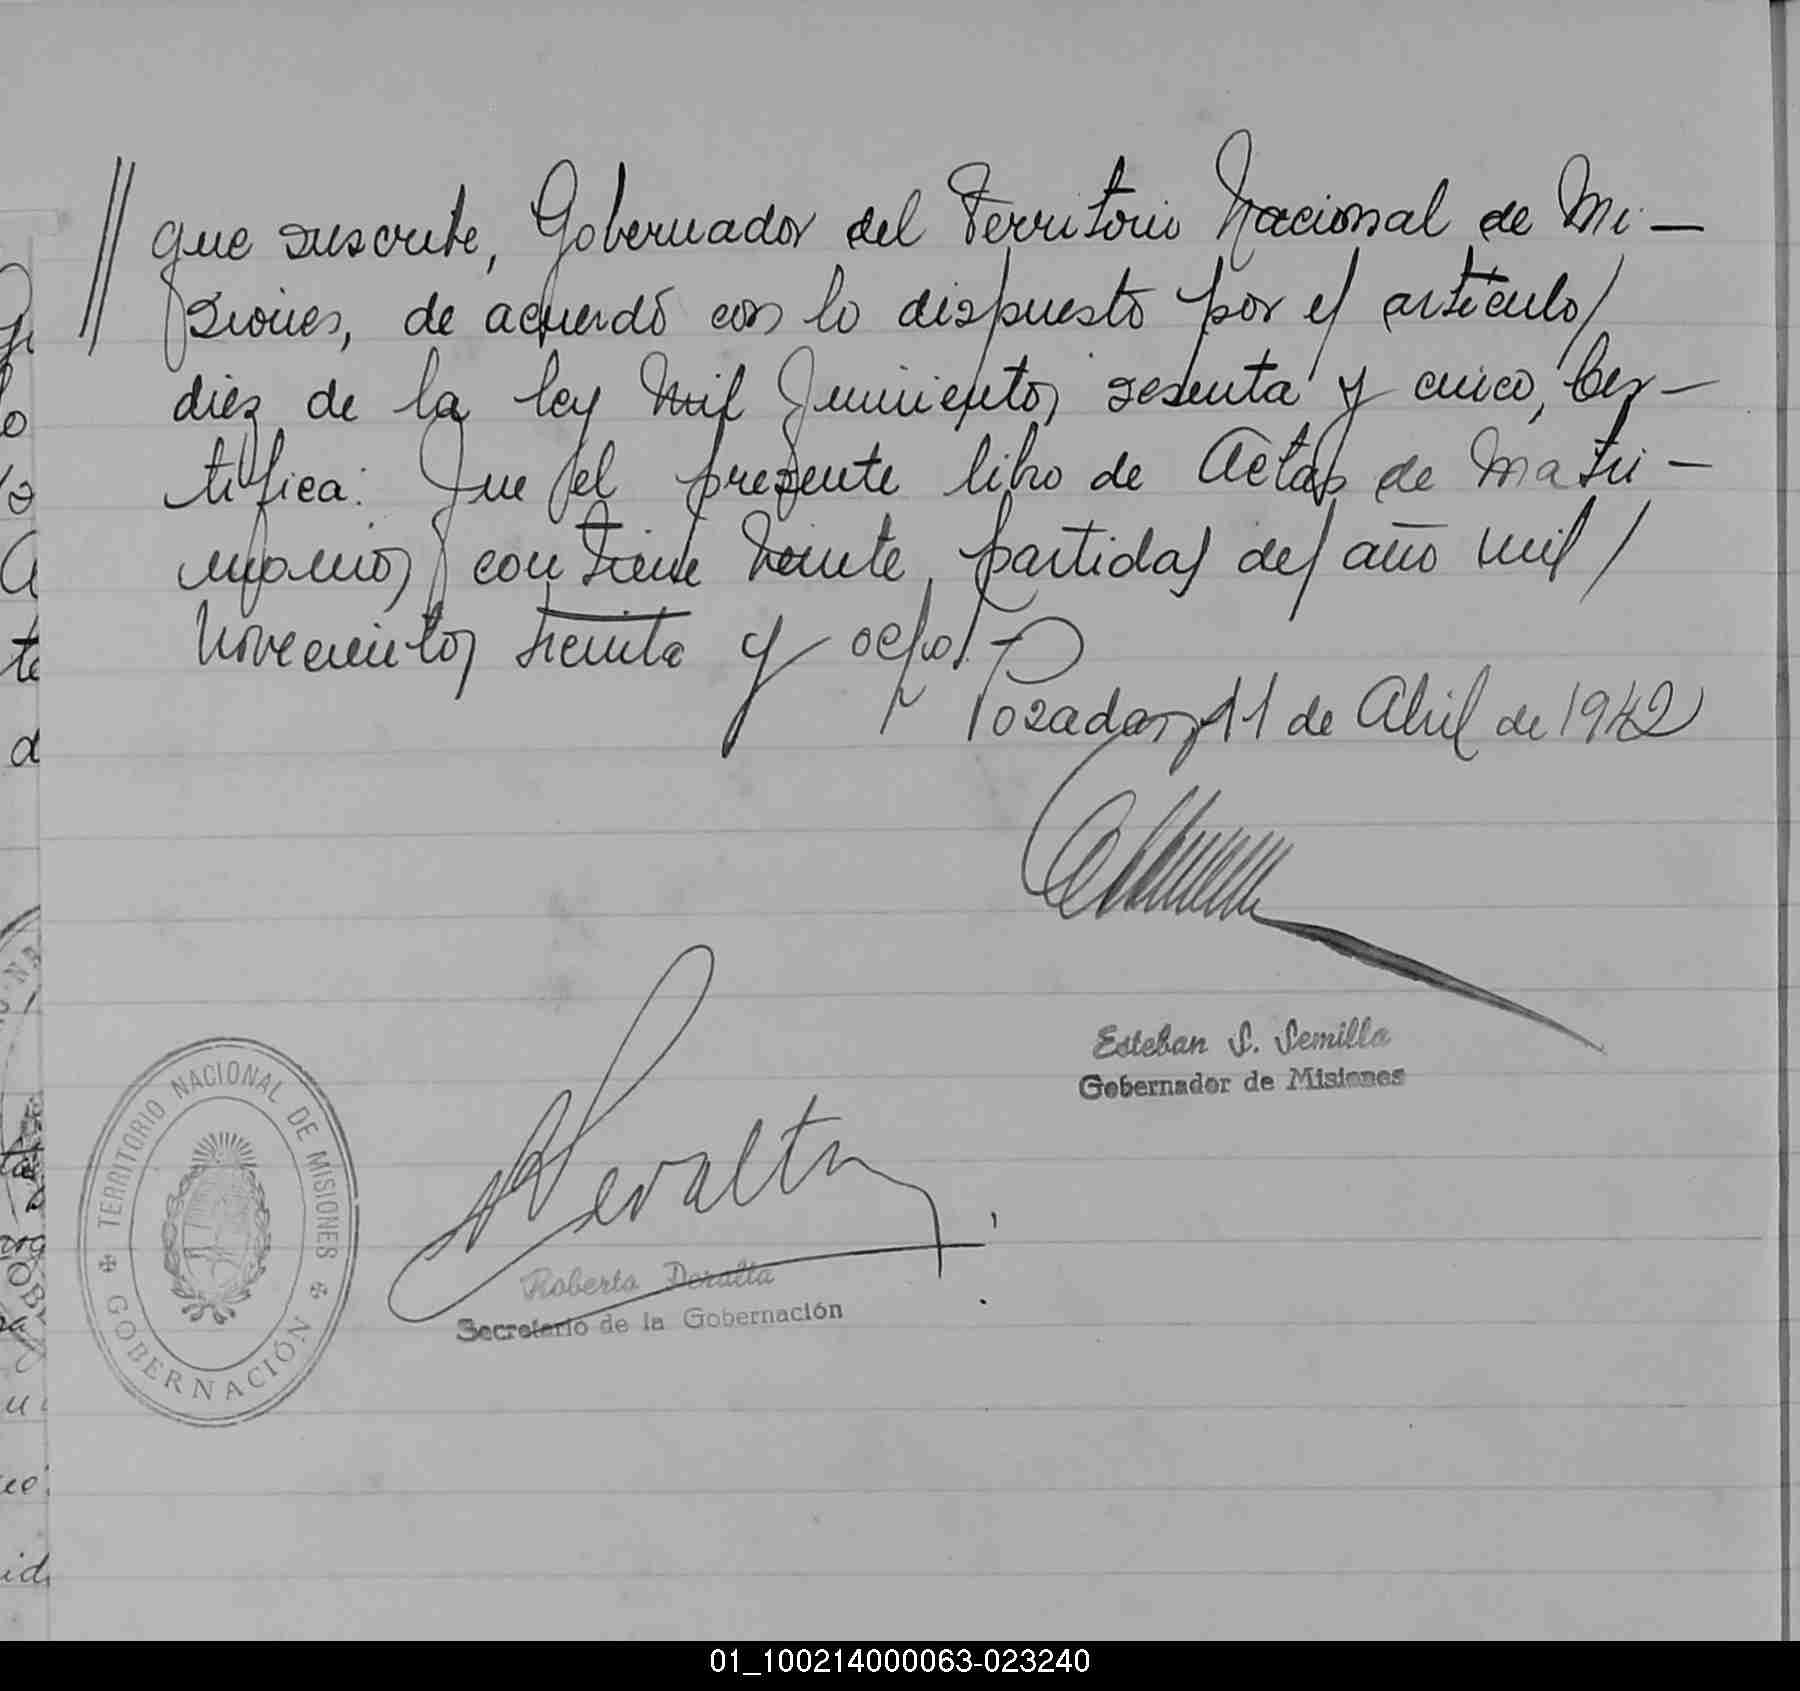 // que suscribe, Gobernador del Territorio Nacional de Mi—
siones, de acuerdo con lo dispuesto por el artículo/
diez de la ley mil quinientos sesenta y cinco, Cer—
tifica: Que el presente libro de Actas de Matri—
monios contiene veinte partidas del año mil/
novecientos treinta y ocho.
Posadas, 11 de Abril de 1942
Esteban S. Semilla
Gobernador de Misiones
Peralta
Roberto Peralta
Secretario de la Gobernación
TERRITORIO NACIONAL DE MISIONES
GOBERNACIÓN
01_100214000063-023240